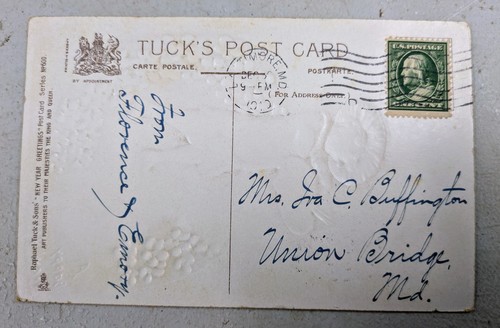 TUCK'S POST CARD
CARTE POSTALE.
POSTKARTE.
BY APPOINTMENT
(FOR ADDRESS ONLY)
MORE, MD.
U.S. POSTAGE
ONE CENT
Raphael Tuck & Sons' "NEW YEAR GREETINGS" Post Card Series Nº 600.
ART PUBLISHERS TO THEIR MAJESTIES THE KING AND QUEEN
From
Florence & Emory.
Mrs. Ira C. Buffington
Union Bridge,
Md.